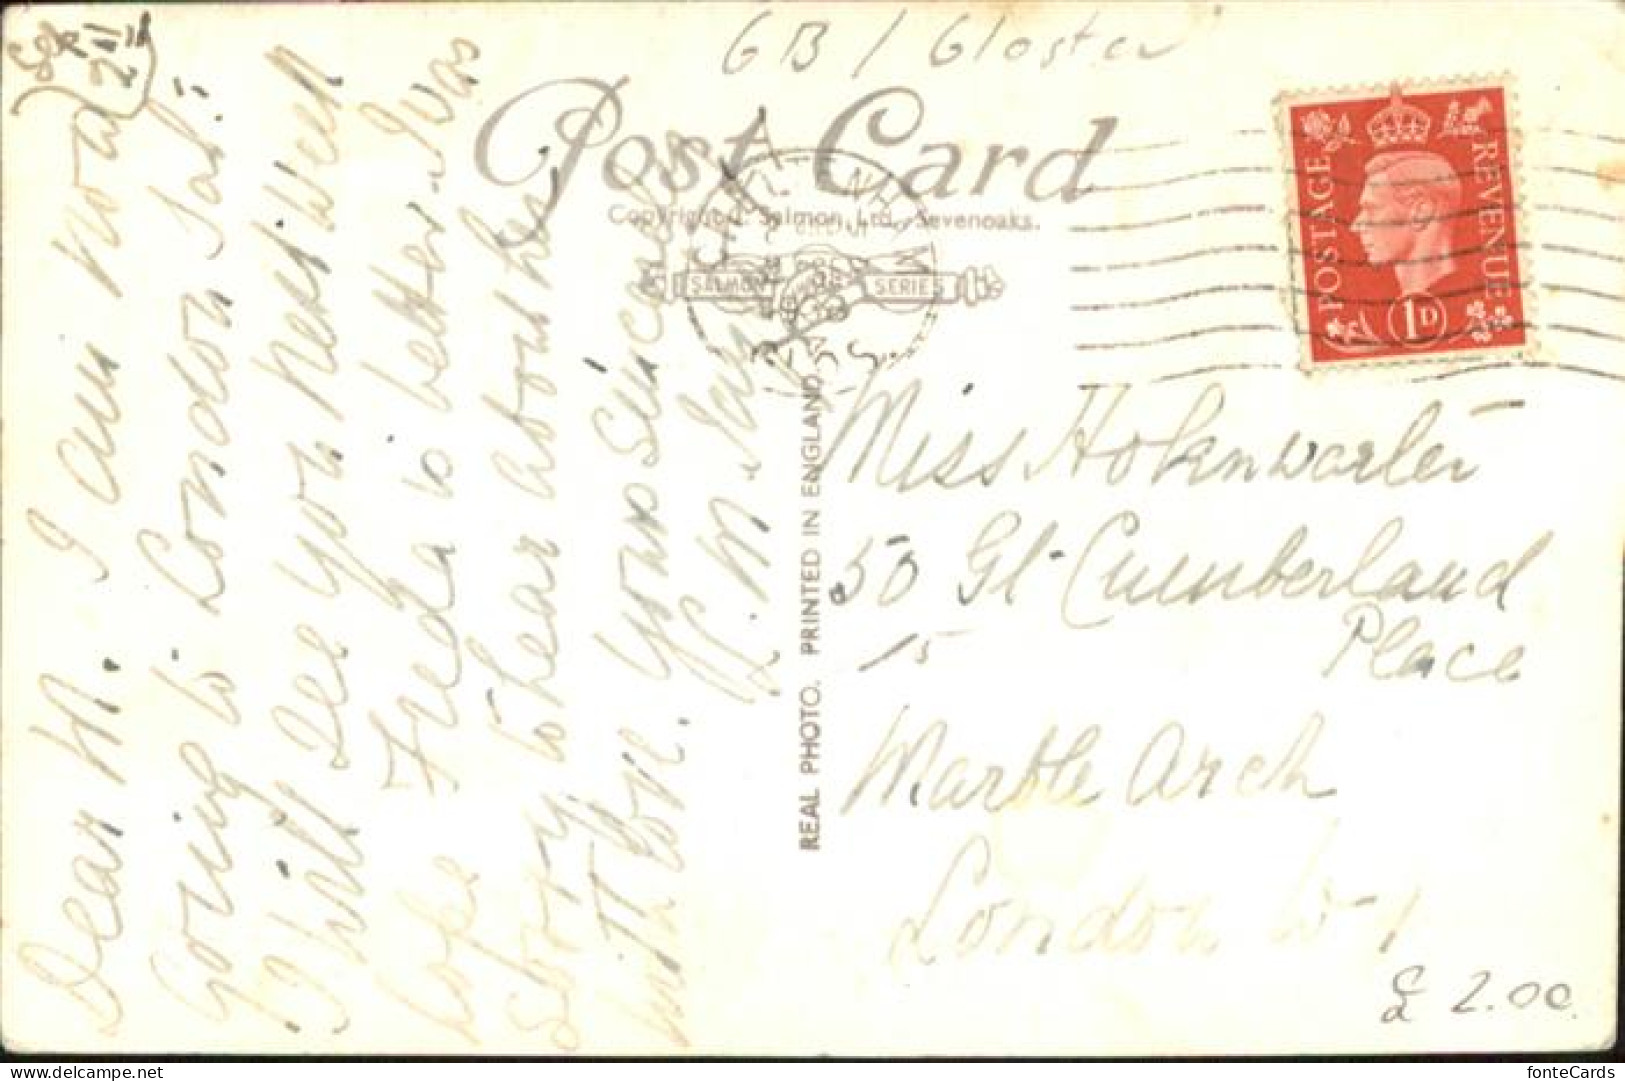 GB / Gloster
Post Card
Copyright J. Salmon Ltd., Sevenoaks.
SALMON SERIES
POSTAGE REVENUE
1D
CHELTENHAM
REAL PHOTO. PRINTED IN ENGLAND
Dear M. I am now
Going to London Sat:
I will see you next week
Freda is better. I was
so sorry to hear about her
with love. Yours Sincerely
Miss Hohenwarter
50 Gt Cumberland
Place
15
Marble Arch
London W-1
£ 2.00
fonteCards